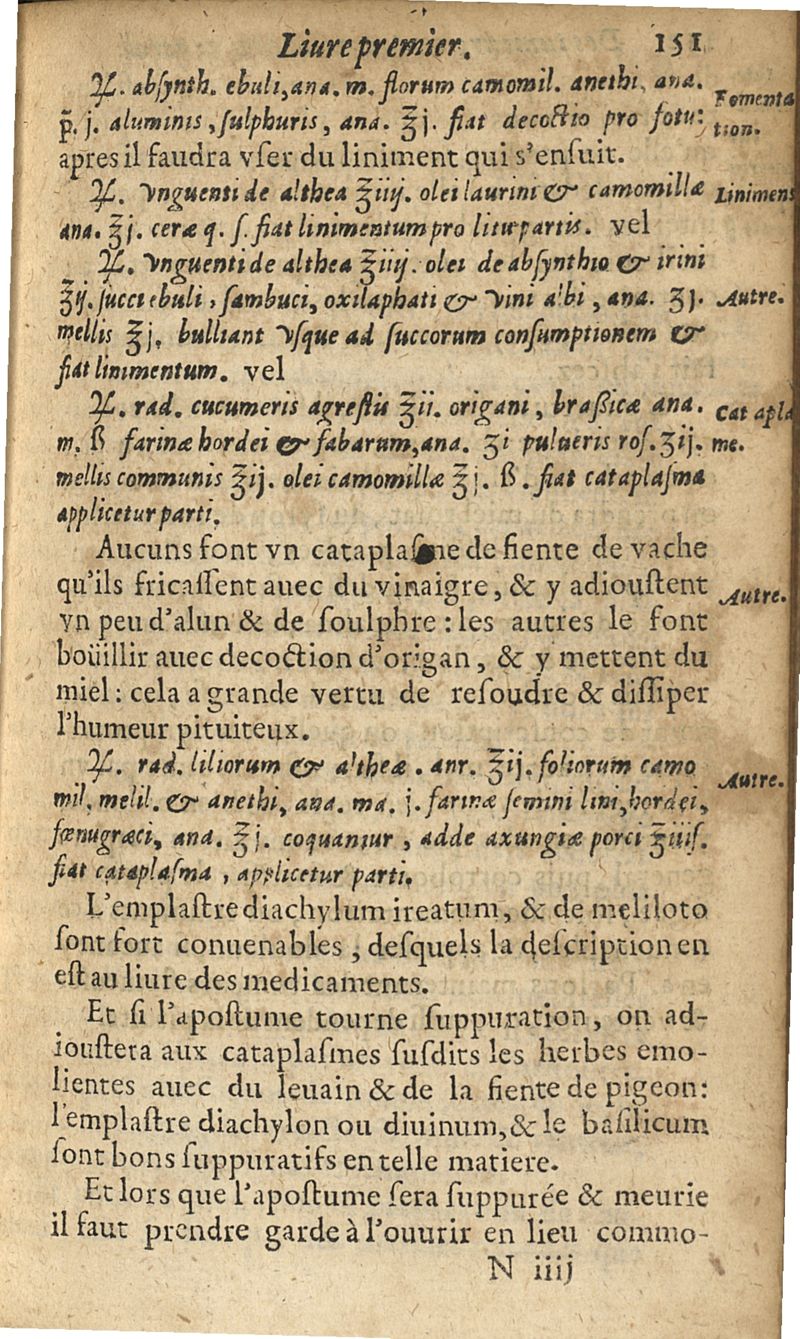 Liure premier. 151
℞. absynth. ebuli, ana. m. florum camomil. anethi, ana.
p̃. j. aluminis, sulphuris, ana. ℥j. fiat decoctio pro fotu:
Fomentation.
apres il faudra vser du liniment qui s'ensuit.
℞. vnguenti de althea ℥iiij. olei laurini & camomillæ
Liniment
ana. ℥j. ceræ q. s. fiat linimentum pro litu partis. vel
℞. vnguenti de althea ℥iiij. olei de absynthio & irini
℥ij. succi ebuli, sambuci, oxilaphati & vini albi, ana. ʒj.
Autre.
mellis ℥j. bulliant vsque ad succorum consumptionem &
fiat linimentum. vel
℞. rad. cucumeris agrestis ℥ii. origani, braßicæ ana.
Cataplame.
m. ß farinæ hordei & fabarum, ana. ʒi pulueris ros. ʒij.
mellis communis ℥ij. olei camomillæ ℥j. ß. fiat cataplasma
applicetur parti.
Aucuns font vn cataplasme de fiente de vache
qu'ils fricassent auec du vinaigre, & y adioustent
Autre.
vn peu d'alun & de soulphre : les autres le font
boüillir auec decoction d'origan, & y mettent du
miel : cela a grande vertu de resoudre & dissiper
l'humeur pituiteux.
℞. rad. liliorum & altheæ. anr. ℥ij. foliorum camo
Autre.
mil. melil. & anethi, ana. ma. j. farinæ semini lini, hordei,
fœnugræci, ana. ℥j. coquantur, adde axungiæ porci ℥iiis.
fiat cataplasma, applicetur parti.
L'emplastre diachylum ireatum, & de meliloto
sont fort conuenables, desquels la description en
est au liure des medicaments.
Et si l'apostume tourne suppuration, on ad-
ioustera aux cataplasmes susdits les herbes emo-
lientes auec du leuain & de la fiente de pigeon:
l'emplastre diachylon ou diuinum, & le basilicum
sont bons suppuratifs en telle matiere.
Et lors que l'apostume sera suppurée & meurie
il faut prendre garde à l'ouurir en lieu commo-
N iiij